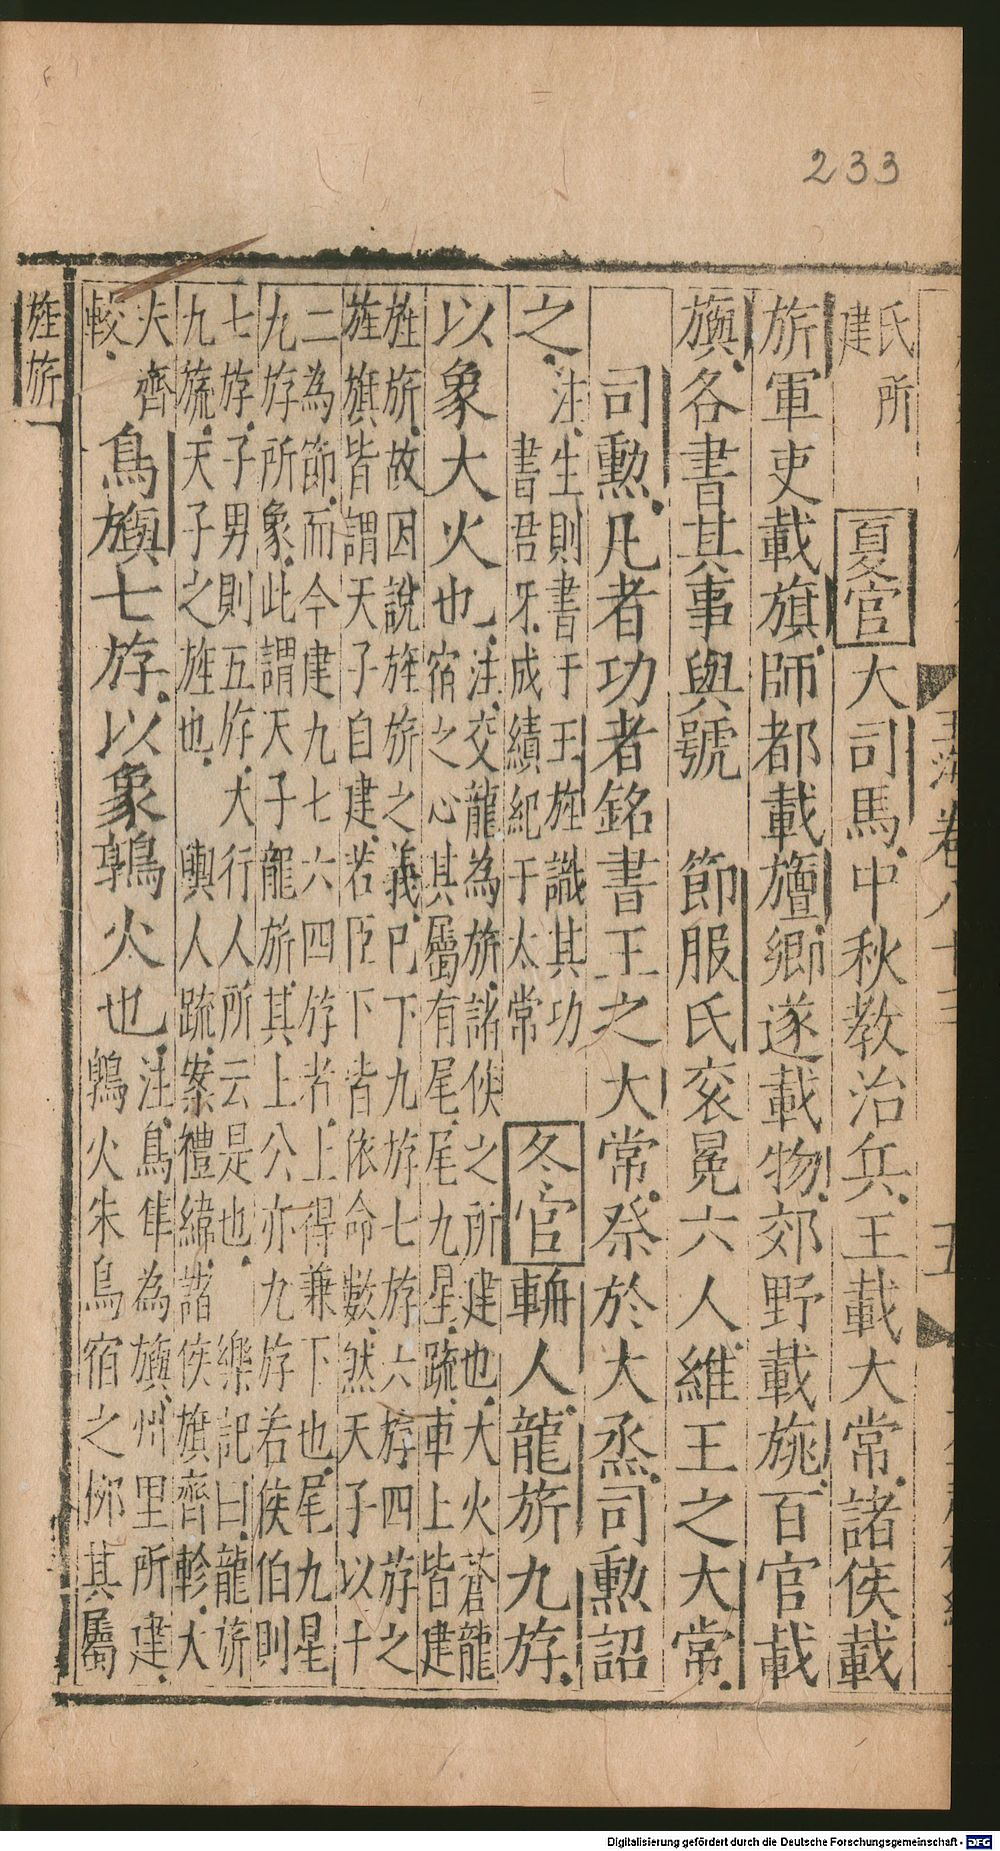 233
氏所
建
夏官大司馬中秋教治兵王載大常諸侯載
旂軍吏載旗師都載旜鄉遂載物郊野載旐百官載
旟各書其事與號　節服氏衮冕六人維王之大常
司勲凡有功者銘書王之大常祭於大烝司勲詔
之
注生則書于王旌識其功
書君牙成績紀于太常
冬官輈人龍旂九斿
以象大火也
注交龍為旂諸侯之所建也大火蒼龍
宿之心其屬有尾尾九星疏車上皆建
旌旂故因說旌旂之義已下九斿七斿六斿四斿之
旌旗皆謂天子自建若臣下皆依命數然天子以十
二為節而今建九七六四斿者上得兼下也尾九星
九斿所象此謂天子龍旂其上公亦九斿若侯伯則
七斿子男則五斿大行人所云是也　樂記曰龍旂
九旒天子之旌也　輿人疏案禮緯諸侯旗齊軫大
夫齊
較
鳥旟七斿以象鶉火也
注鳥隼為旟州里所建
鶉火朱鳥宿之柳其屬
旌旂一
玉海卷八十三
五
Digitalisierung gefördert durch die Deutsche Forschungsgemeinschaft - DFG